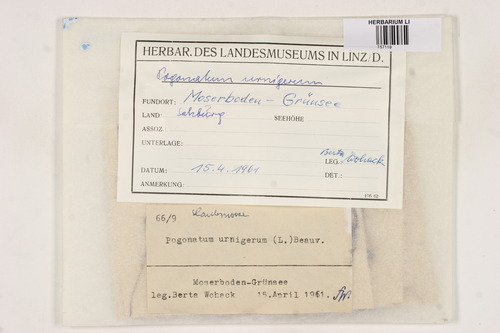 HERBARIUM LI
757119
HERBAR. DES LANDESMUSEUMS IN LINZ/D.
Pogonatum urnigerum
FUNDORT: Moserboden - Grünsee
LAND Salzburg SEEHÖHE
ASSOZ.
UNTERLAGE:
LEG. Berta Woback
DATUM: 15.4.1961 DET.:
ANMERKUNG:
66/9 Laubmoose
Pogonatum urnigerum (L.) Beauv.
Moserboden-Grünsee
leg.Berta Woback 15.April 1961.